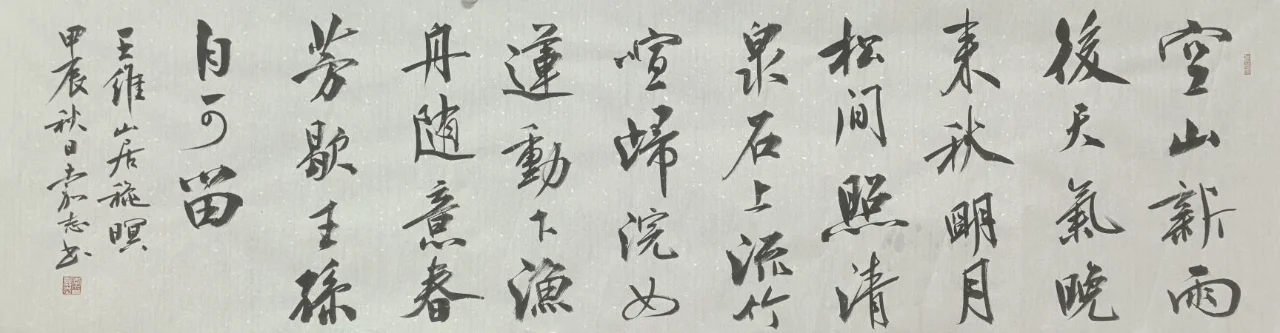 空山新雨
後天氣晚
来秋明月
松间照清
泉石上流竹
喧歸浣女
蓮動下漁
舟随意春
芳歇王孫
自可留
王維山居秋暝
甲辰秋日嘉志书